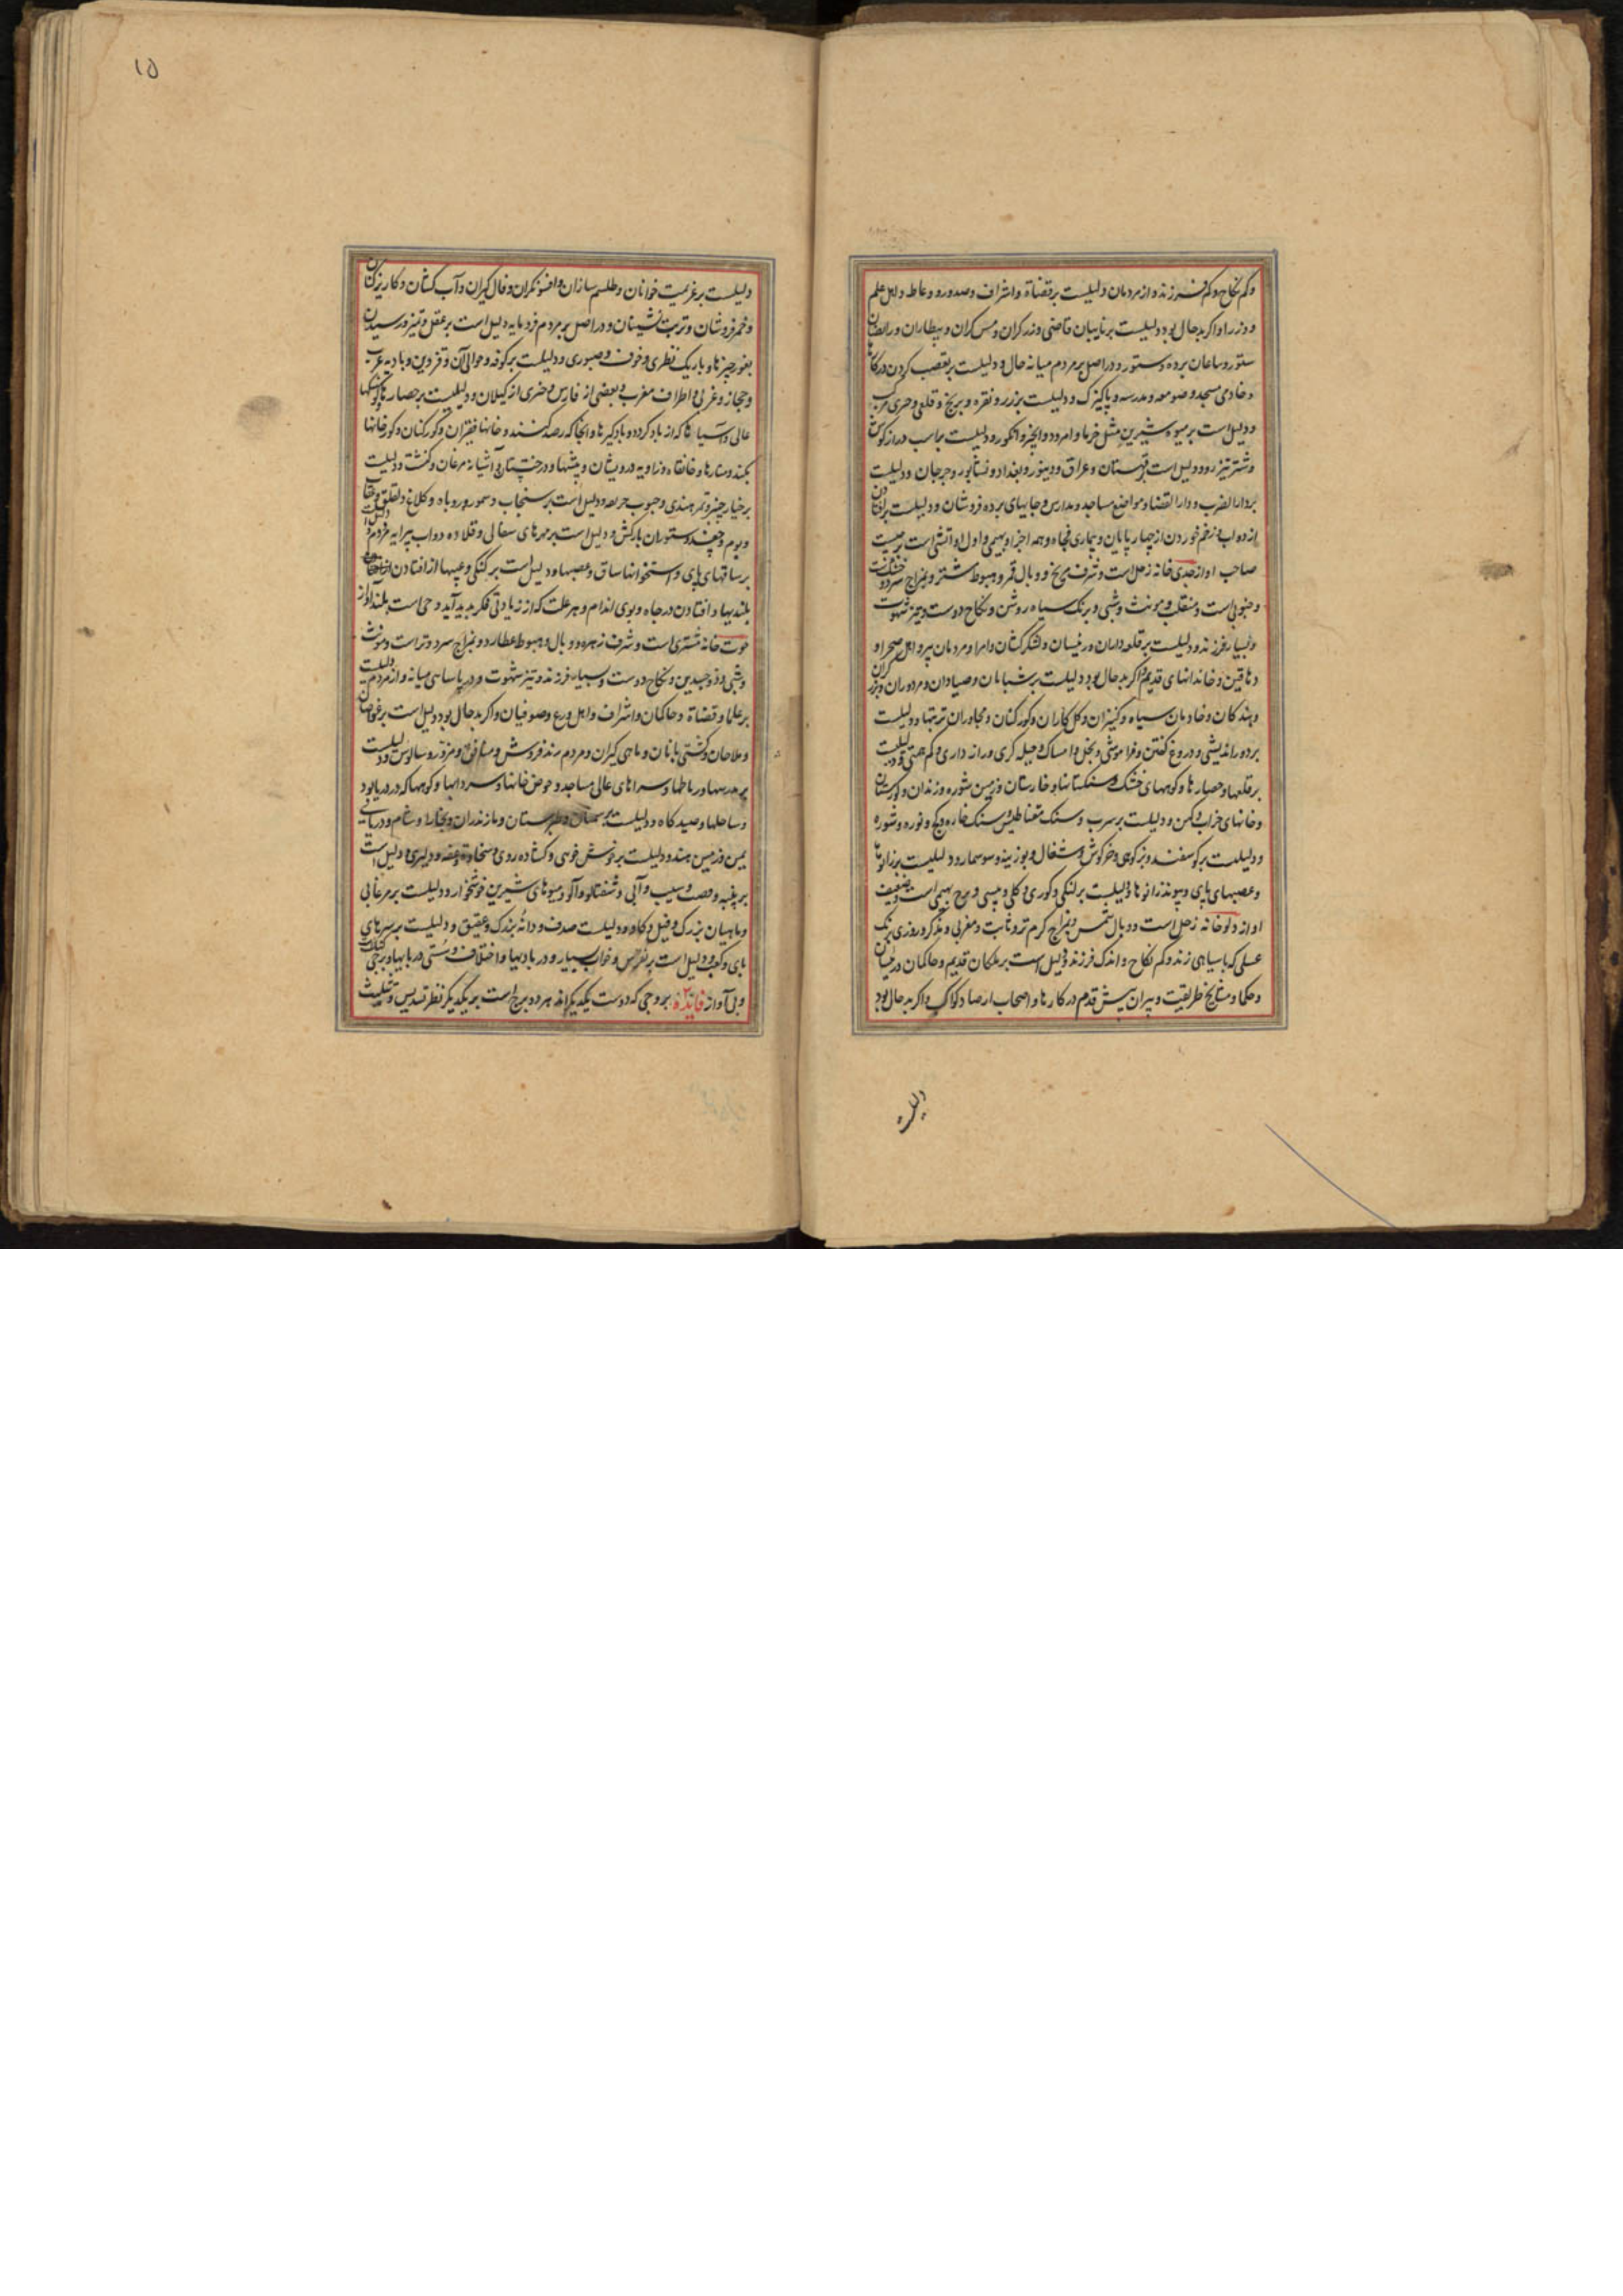 وکم نکاح وکم فرزند و از مردمان دلیلست بر قضاة و اشراف و صدور و وعاظ و اهل علم
و وزرا و اگر بدحال بود دلیلست بر نایبان قاضی و زرکران و مس کران و بیطاران و رایضان
ستور و ساعان برده و ستور و در اصل بر مردم میانه حال و دلیلست بر تعصب کردن در کارها
و خادمی مسجد و صومعه و مدرسه و پاکیزکی و دلیلست بر زر و نقره و برنج و قلعی و
و دلیل است بر میوه شیرین مثل خرما و امرود و انجیر و انکور و دلیلست بر اسب دراز کوش
و شتر تیز رو و دلیل است بر قهستان و عراق و دینور و بغداد و نشابور و جرجان و دلیلست
بر دار الضرب و دار القضا و مواضع مساجد و مدارس و جایهای برده فروشان و دلیلست بر افتادن
از دواب و زخم خوردن از چهار پایان و بیماری مفجاه و همه اجزا و بهیمی و اول او آتشی است
صاحب اواز جدی خانه زحل است و شرف مریخ و وبال قمر و هبوط مشتری و بمزاج سرد و خشکست
و جنوبی است و منقلب و مونث و شبی و برنک سیاه روشن و نکاح دوست و تیز شهوت
و بسیار فرزند و دلیلست بر قلعه داران و رئیسان و لشکر کشان و امرا و مردمان پیر و اهل صحرا و
دهاقین و خاندانهای قدیم و اگر بدحال بود دلیلست بر شبانان و صیادان و مزدوران و برزگران
و بندکان و خادمان سیاه و کنیزان و کل کاران و کورکنان و مجاوران تربتها و دلیلست
بر دور اندیشی و دروغ کفتن و فراموشی و بخل و امساک و حیله کری و راز داری و کم همتی و دلیلست
بر قلعها و حصارها و کوههای خشک و سنکستانها و خارستان و زمین شوره و زندان و کورستان
و خانهای خراب و کهن و دلیلست بر سرب و سنک مغناطیس و سنک خاره و کچ و نوره و شوره
و دلیلست بر کوسفند و بز کوهی و خرکوش و شغال و بوزینه و سوسمار و دلیلست بر زانوها
و عصبهای پای و پیوند زانوها و دلیلست بر لنکی و کوری و کلی و پیسی و برج بهیمی است و ضعیف
اواز دلو خانه زحل است و وبال شمس و بمزاج کرم و تر و ثابت و مغربی و مذکر و روزی برنک
عسلی که با سیاهی زند و کم نکاح و اندک فرزند و دلیل است بر ملکان قدیم و حاکمان و رئیسان
و حکما و مشایخ طریقت و پیران پیش قدم در کارها و اصحاب ارصاد کواکب و اکر بدحال بود
دلیلست
۱۵
دلیلست بر عزیمت خوانان و طلسم سازان و افسونکران و فال کیران و آب کشان و کاریز کنان
و خمر فروشان و تربت نشینان و در اصل بر مردم فرومایه دلیل است بر عقل و تمیز و رسیدن
بغور چیزها و باریک نظری و خوف و صبوری و دلیلست بر کوفه و حوالی آن و قزوین و بادیه عرب
و حجاز و غربی و اطراف مغرب و بعضی از فارس و از کیلان و دلیلست بر حصارها و کوشکها
عالی و آسیاها که از باد کردد و بادکیرها و انجا که رصد کنند و خانها فقیران و کورکنان و کورخانها
بکند و منارها و خانقاه و زاویه درویشان و بیشها و درختستان و آشیانه مرغان و کنشت و دلیلست
بر خیار چنبر و تمر هندی و حبوب و دلیل است بر سنجاب و سمور و روباه و کلاغ و لقلق و عقاب
و بوم و چغد و ستوران بارکش و دلیل است بر مهرهای سفالی و قلاده دواب پیرایه مردم و دلیل است
بر ساقهای پای و استخوانها ساق و عصبها و دلیل است بر کنکی و عیبها از افتادن از جای
بلندیها و افتادن در چاه و بوی اندام و هر علت که از زیادتی فکر بد پدید آید و است بلند آواز
حوت خانه مشتری است و شرف زهره و وبال و هبوط عطارد و بمزاج سرد و تر است و مونث
و شبی و ذو جسدین و نکاح دوست و بسیار فرزند و تیز شهوت و در پارسایی میانه و از مردم دلیلست
بر علما و قضاة و حاکمان و اشراف و اهل ورع و صوفیان و اکر بدحال بود دلیل است بر غواصان
و ملاحان و کشتی بانان و ماهی کیران و مردم رند فروش و منافق و مزور و سالوس و دلیلست
بر مدرسها و رباطها و سراهای عالی مساجد و حوض خانها و سردابها و کوهها که در دریا بود
و ساحلها و صیدکاه و دلیلست بر و طبرستان و مازندران و بخارا و شام و دریای
یمن و زمین هند و دلیلست بر خوش خویی و کشاده رویی و سخاوت و عفه و دلیری و دلیل است
بر پنبه و قصب و سیب و آبی و شفتالو و آلو و میوهای شیرین خوشخوار و دلیلست بر مرغابی
و ماهیان بزرک و فیل و کاو و دلیلست صدف و دانه بزرک و عقیق و دلیلست بر سرهای
پای و کعب و دلیل است بر نقرس و خواب بسیار و درد پایها و اختلاف و سستی در پایها و برجی
و بی آواز فائده بروجی که دوست یکدیکراند هر دو برج است بر یکدیکر نظر تسدیس و تثلیث